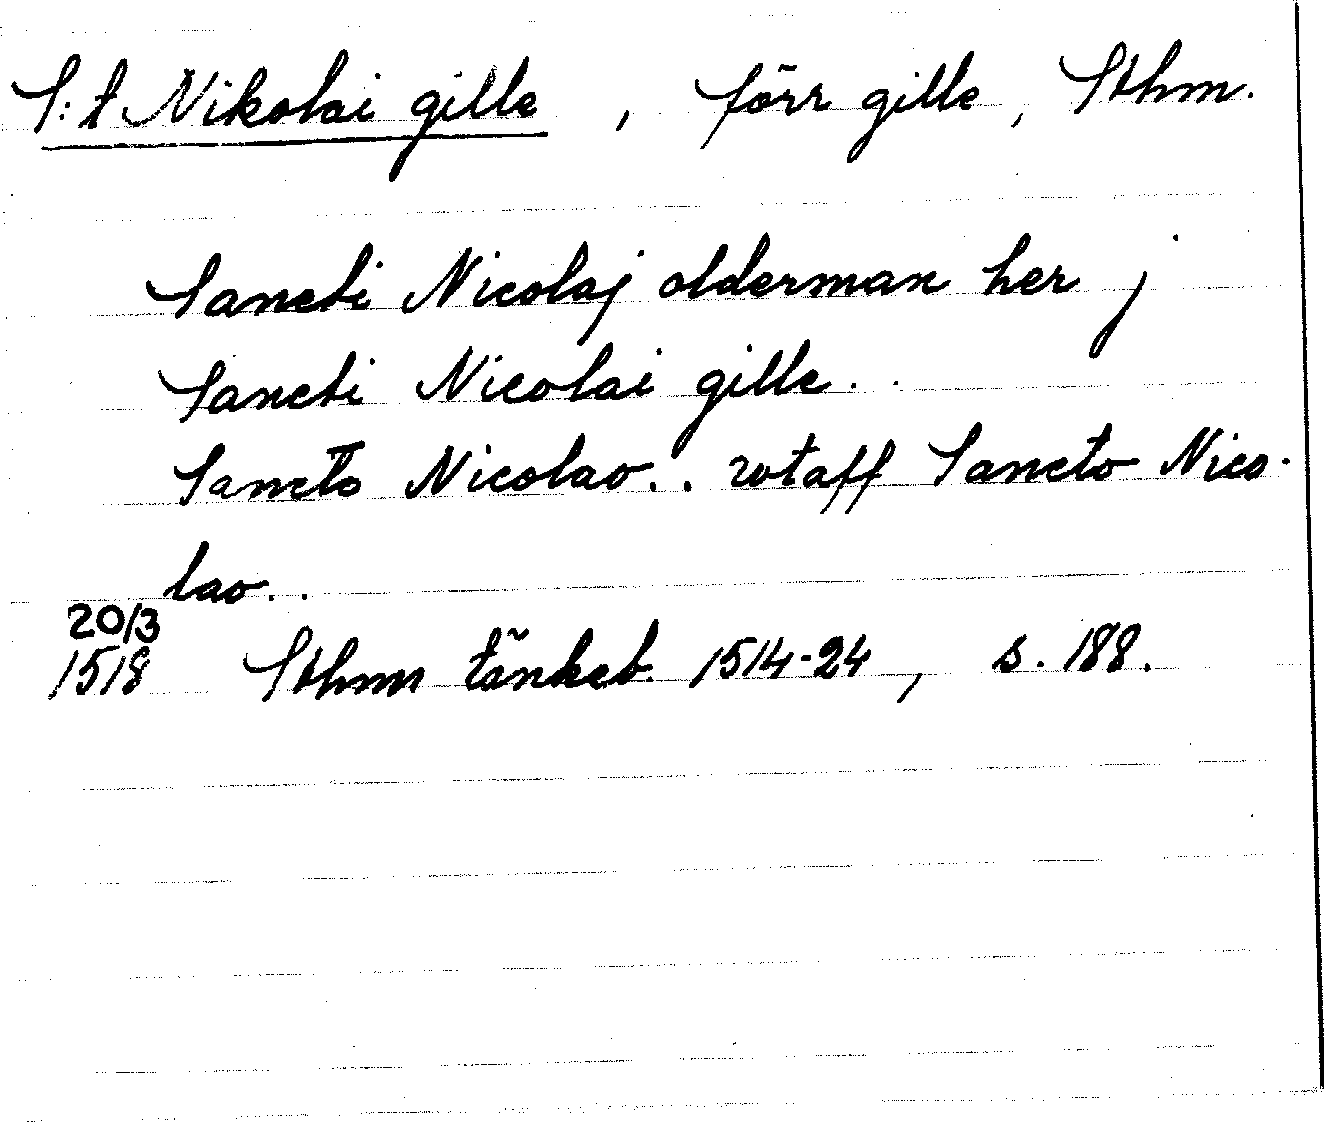 S:t Nikolai gille, förr gille, Sthm.
Sancti Nicolaj olderman her j
Sancti Nicolai gille..
Sancto Nicolao.. wtaff Sancto Nico-
lao..
20/3
1518 Sthm tänkeb. 1514-24, s. 188.